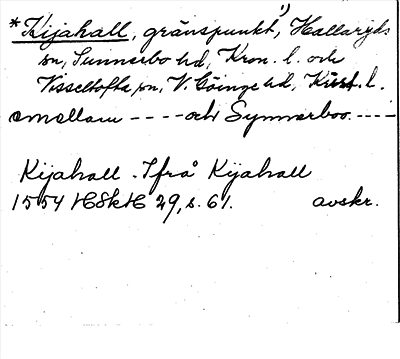 *Kijahall, gränspunkt¹⁾, Hallaryds
sn, Sunnerbo hd, Kron. l. och
Visseltofta sn, V. Göinge hd, Krist. l.
emellam ---- och Synnerboo ----
Kijahall. Ifrå Kijahall
1554 HSkH 29, s. 61. avskr.